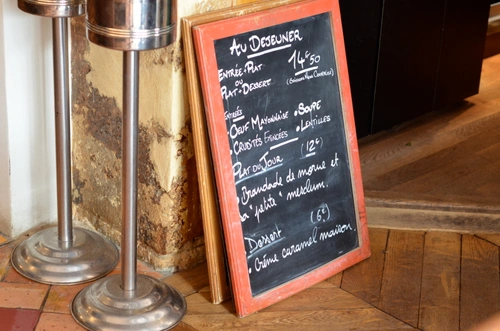 AU DEJEUNER
ENTRÉE-PLAT 14€50
OU
PLAT-DESSERT
ENTRÉES
• OEUF MAYONNAISE • SOUPE
• CRUDITÉS • LENTILLES
PLAT DU JOUR (12€)
• Brandade de morue et
sa "petite" mesclum.
Dessert (6€)
• Crème caramel maison.